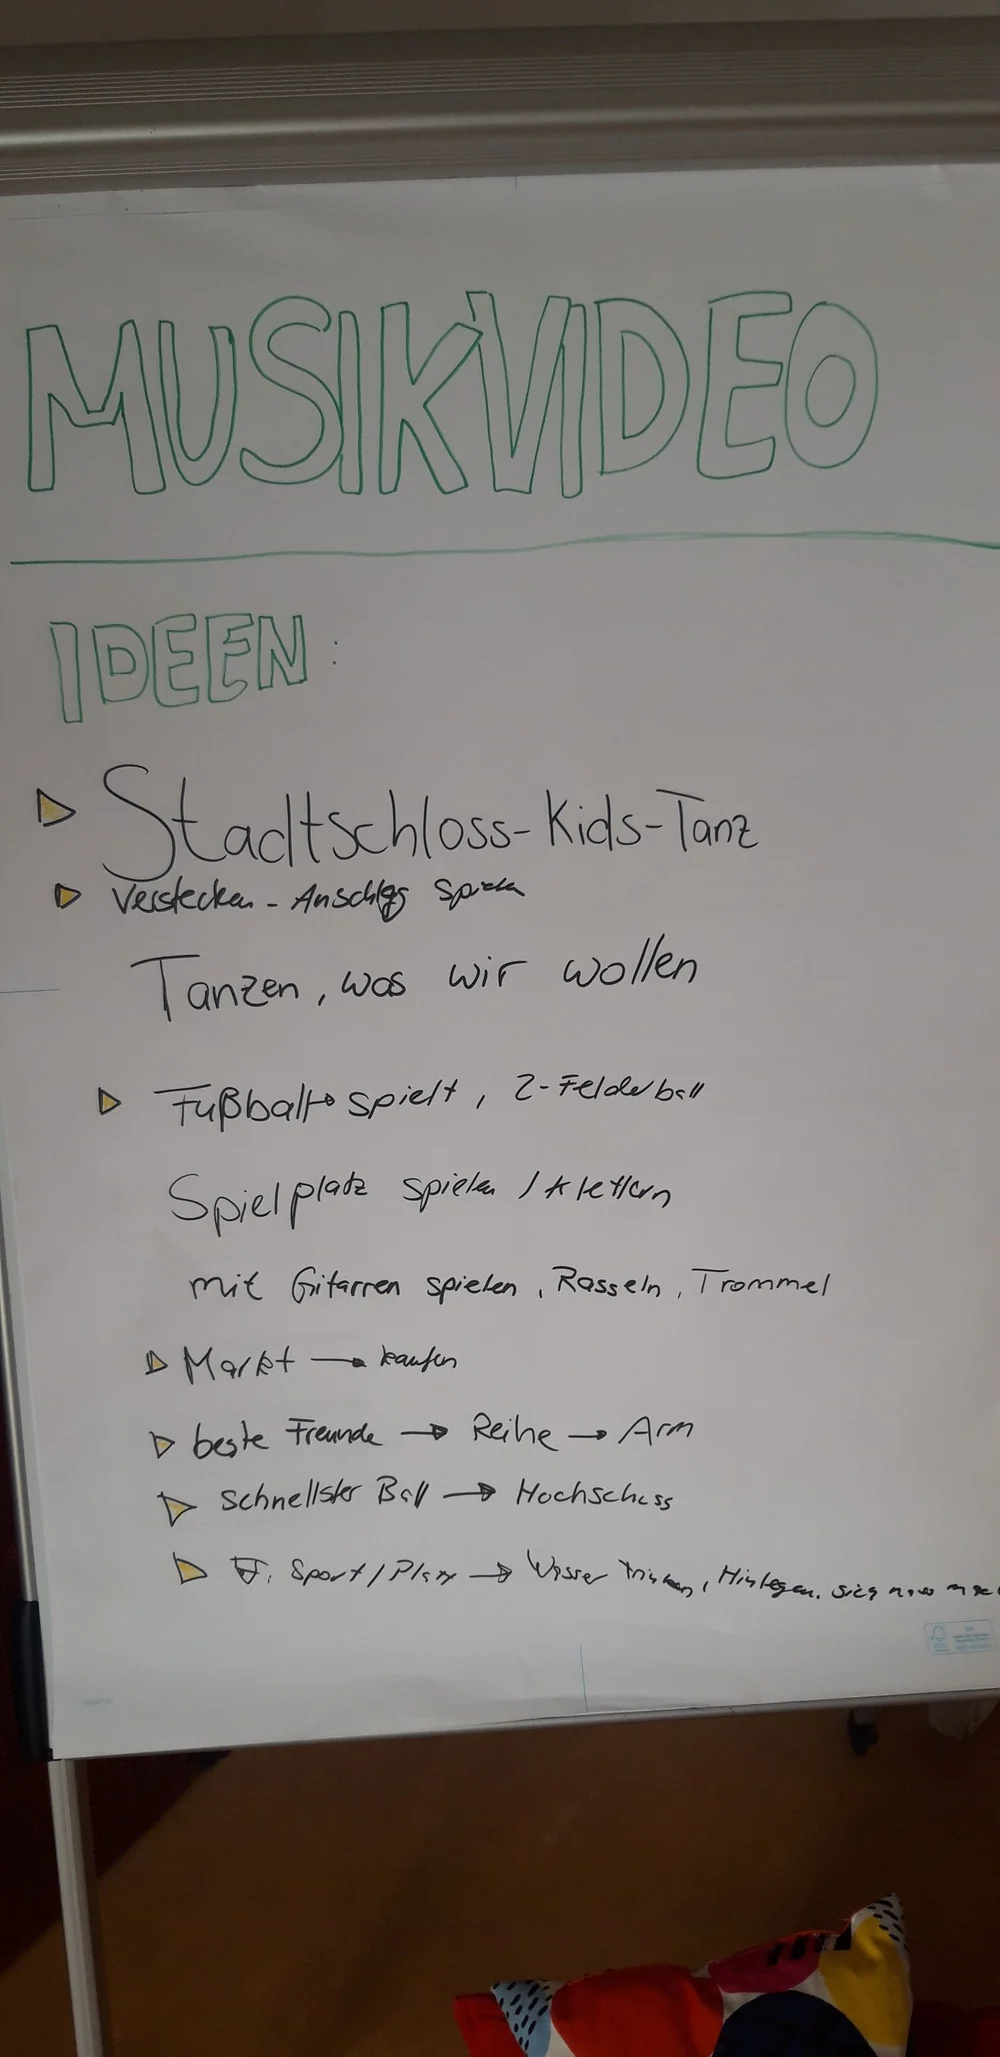 MUSIKVIDEO
IDEEN:
Stadtschloss-Kids-Tanz
Verstecken - Anschlag spielen
Tanzen, was wir wollen
Fußball → spielt, 2-Felderball
Spielplatz spielen / klettern
mit Gitarren spielen, Rasseln, Trommel
Markt → kaufen
beste Freunde → Reihe → Arm
schnellster Ball → Hochschuss
Sport/Platz → Wasser trinken, Hinlegen, sich nass